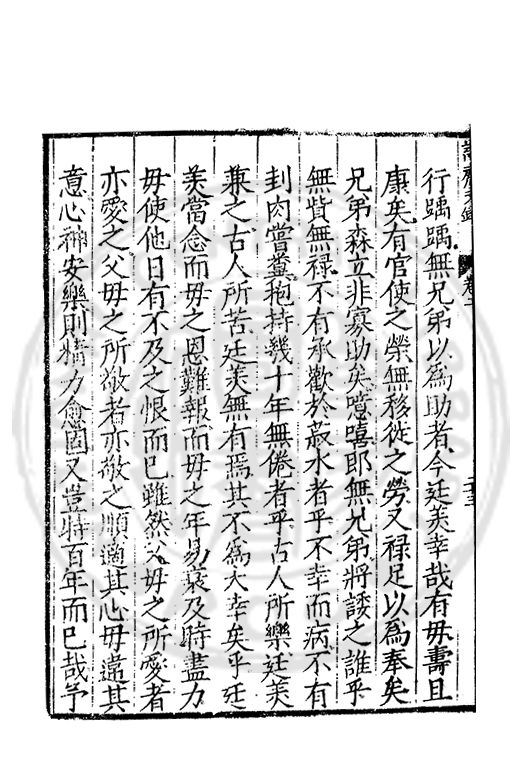 行踽踽無兄弟以為助者今廷美幸哉有毋壽且
康矣有官使之榮無移徙之勞又祿足以為奉矣
兄弟森立非寡助矣噫嘻即無兄弟將諉之誰乎
無貲無祿不有承歡於菽水者乎不幸而病不有
刲肉嘗糞抱持幾十年無倦者乎古人所樂廷美
兼之古人所苦廷美無有焉其不為大幸矣乎廷
美當念而毋之恩難報而毋之年易衰及時盡力
毋使他日有不及之恨而已雖然父毋之所愛者
亦愛之父毋之所敬者亦敬之順適其心毋違其
意心神安樂則精力愈固又豈特百年而已哉予